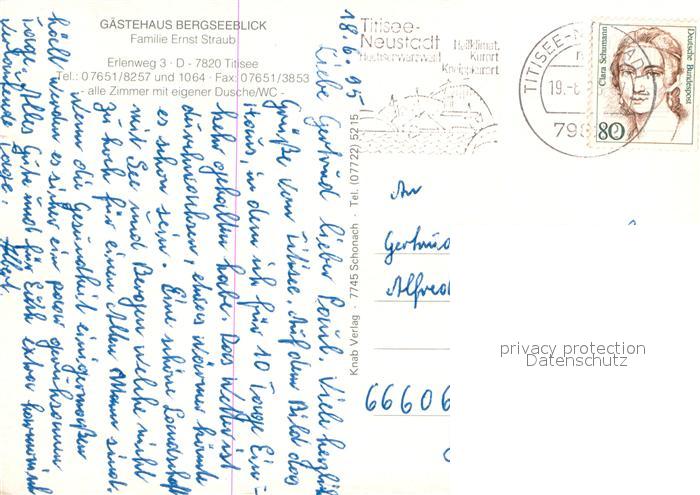 GÄSTEHAUS BERGSEEBLICK
Familie Ernst Straub
Erlenweg 3 · D - 7820 Titisee
Tel.: 07651/8257 und 1064 · Fax: 07651/3853
- alle Zimmer mit eigener Dusche/WC -
18.6.95
Liebe Gertrud lieber Paul. Viele herzliche
Grüße vom Titisee. Auf dem Bild das
Haus, in dem ich für 10 Tage Ein-
kehr gehalten habe. Das Wetter ist
durchwachsen, etwas wärmer könnte
es schon sein. Eine schöne Landschaft
mit See und Bergen welche nicht
zu hoch für einen alten Mann sind.
Wenn die Gesundheit einigermaßen
hält werden es sicher ein paar geruhsame
Tage. Alles Gute und für Euch extra harmonisch
verlaufende Tage.
Albert.
Knab Verlag · 7745 Schonach · Tel. (07722) 5215
Titisee-
Neustadt
Hochschwarzwald
Heilklimat.
Kurort
Kneippkurort
TITISEE-N
19.-6.
Clara Schumann
Deutsche Bundespost
80
An
Gertrud
Alfred
66606
privacy protection
Datenschutz